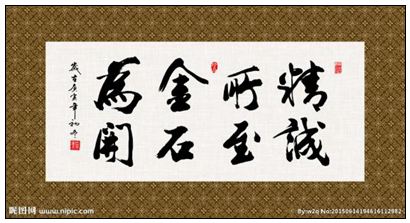 精誠
所至
金石
為開
昵图网 www.nipic.com
By:w2q No:20150614194616112982